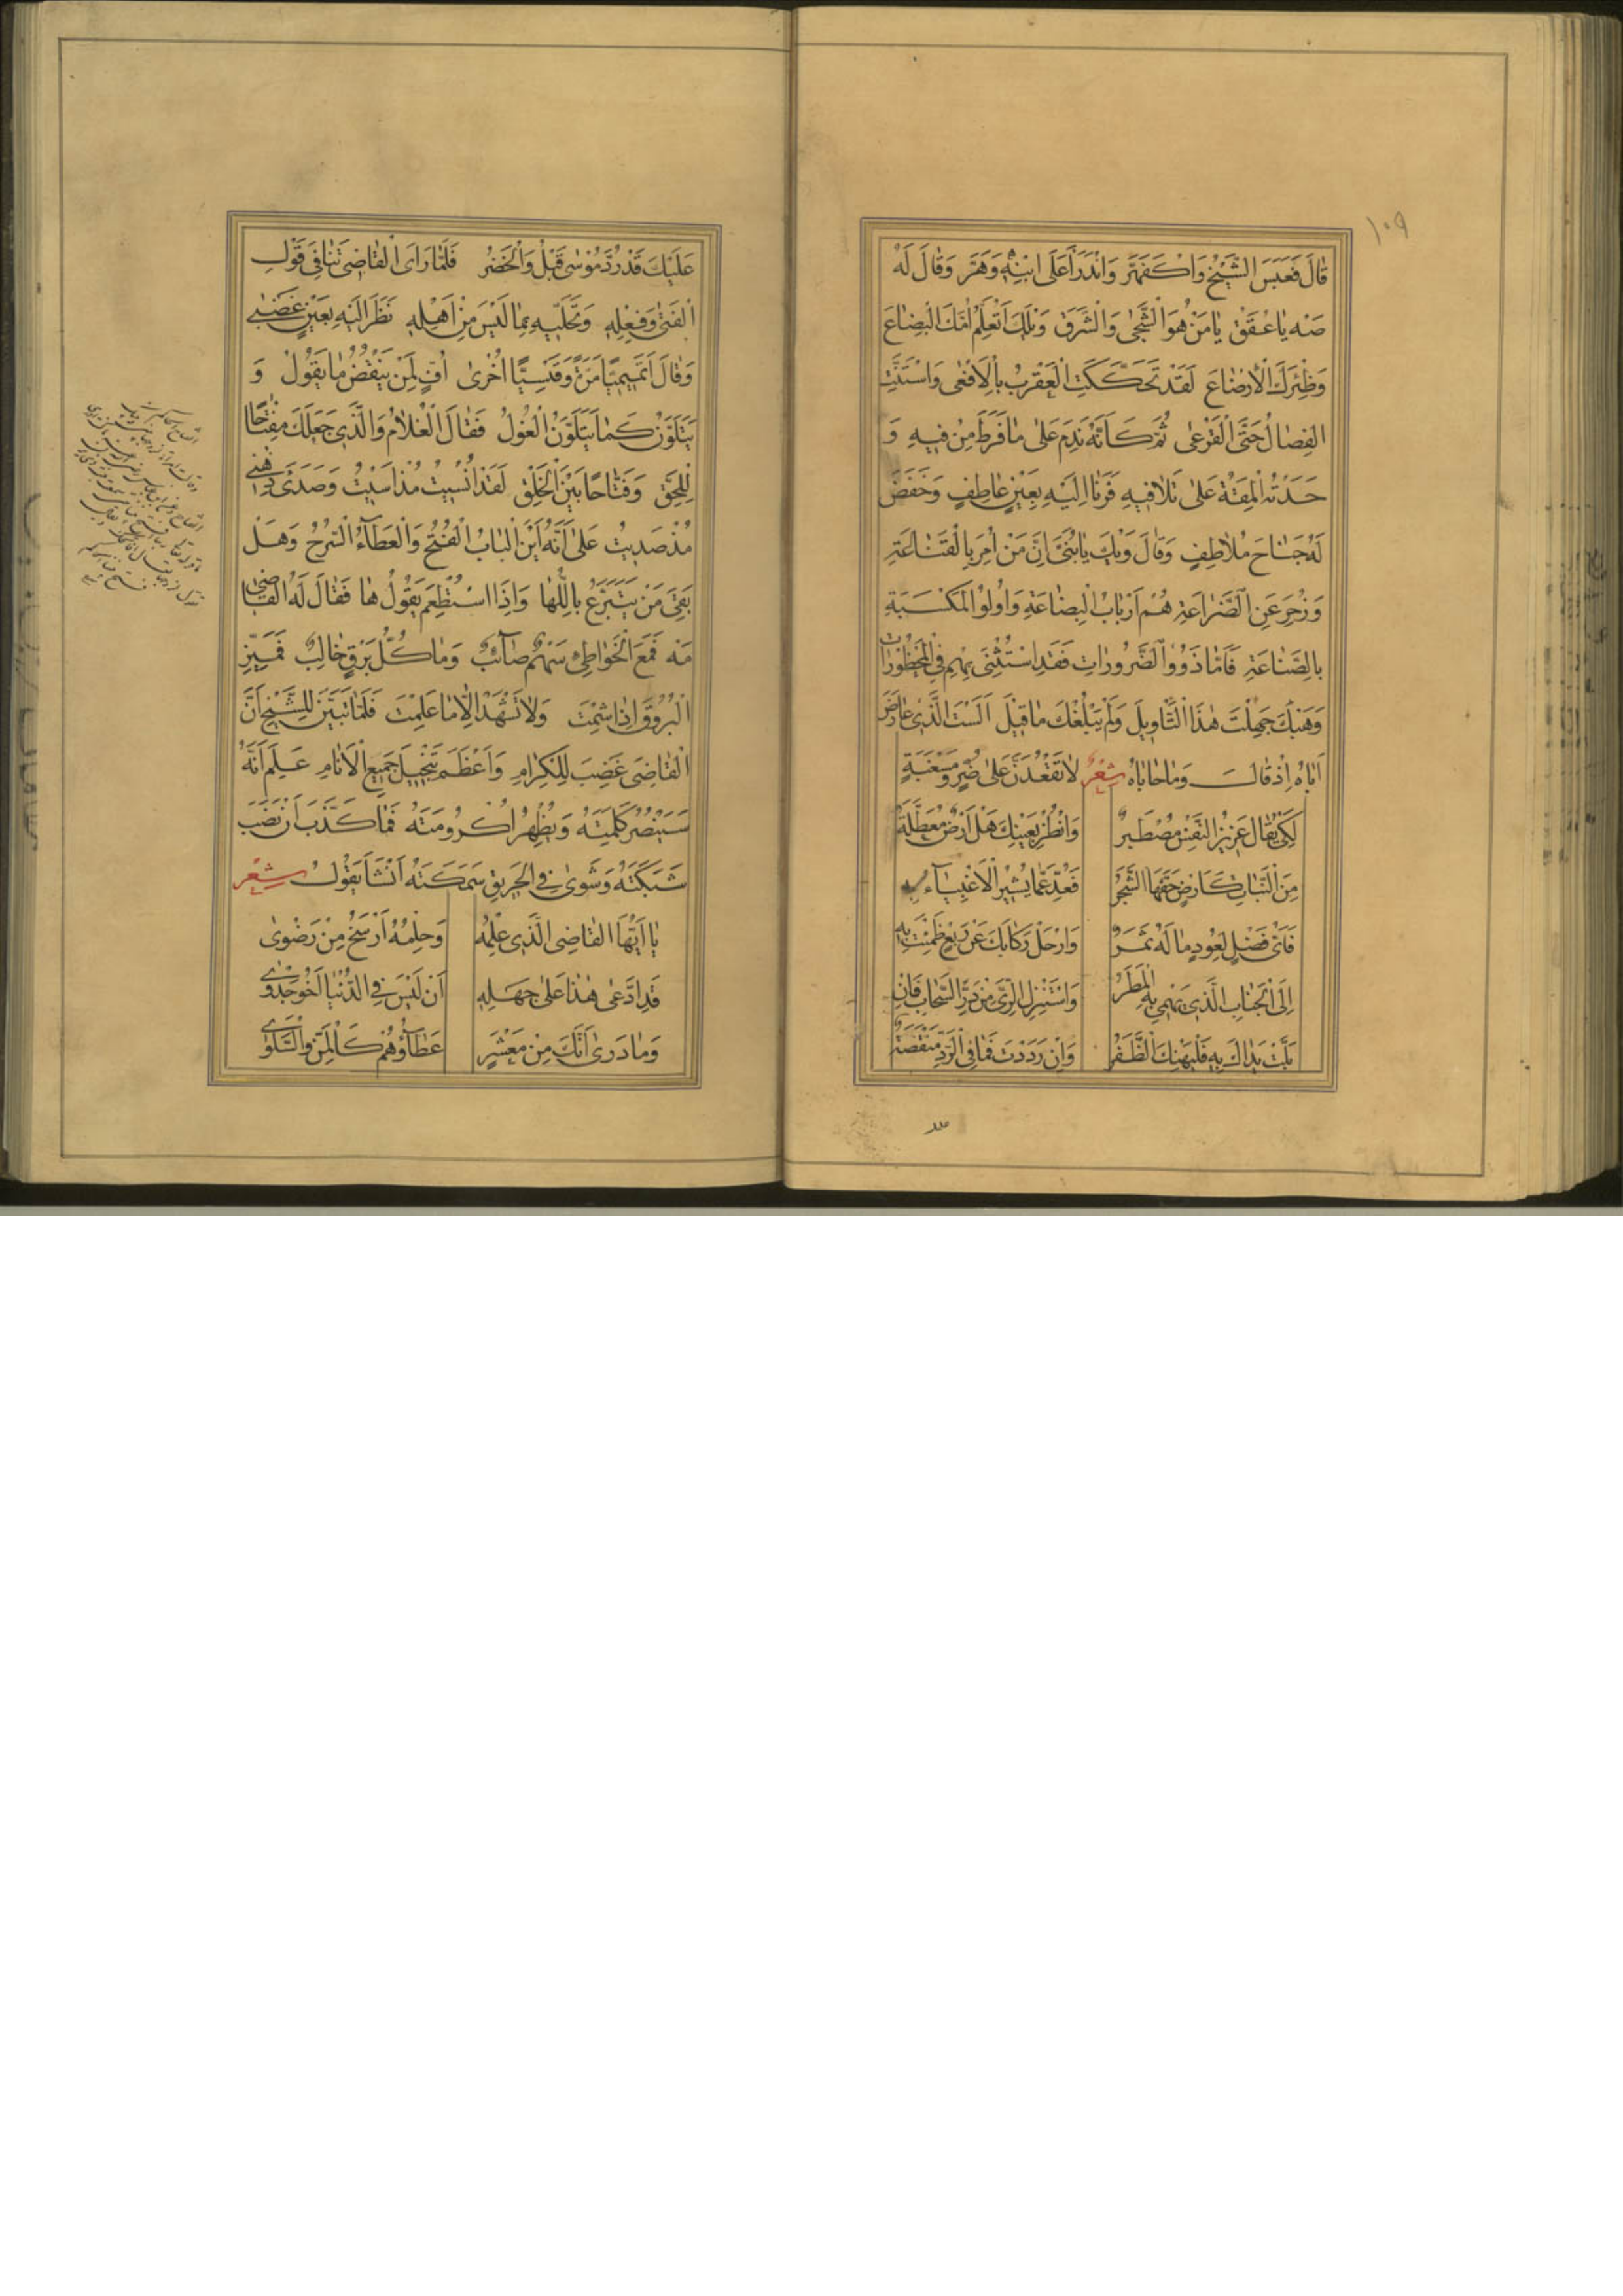 ١٠٩
قَالَ فَعَبَسَ الشَّيْخُ وَاكْفَهَرَّ وَانْدَرَأَ عَلَى ابْنِهِ وَهَرَّ وَقَالَ لَهُ
صَهْ يَا عُقَقُ يَا مَنْ هُوَ الشَّجَى وَالشَّرَقُ وَيْلَكَ أَتُعَلِّمُ أُمَّكَ الْبِضَاعَ
وَظِئْرَكَ الْإِرْضَاعَ لَقَدْ تَحَكَّكَتِ الْعَقْرَبُ بِالْأَفْعَى وَاسْتَنَّتِ
الْفِصَالُ حَتَّى الْقَرْعَى ثُمَّ كَأَنَّهُ نَدِمَ عَلَى مَا فَرَطَ مِنْ فِيهِ وَ
حَدَتْهُ الْمِقَةُ عَلَى تَلَافِيهِ فَرَنَا إِلَيْهِ بِعَيْنِ عَاطِفٍ وَخَفَضَ
لَهُ جَنَاحَ مُلَاطِفٍ وَقَالَ وَيْكَ يَا بُنَيَّ إِنَّ مَنْ أُمِرَ بِالْقَنَاعَةِ
وَزُجِرَ عَنِ الضَّرَاعَةِ هُمْ أَرْبَابُ الْبِضَاعَةِ وَأُولُو الْمَكْسَبَةِ
بِالصِّنَاعَةِ فَأَمَّا ذَوُو الضَّرُورَاتِ فَقَدِ اسْتُثْنِيَ بِهِمْ فِي الْمَحْظُورَاتِ
وَهَبْكَ جَهِلْتَ هَذَا التَّأْوِيلَ وَلَمْ يَبْلُغْكَ مَا قِيلَ أَلَسْتَ الَّذِي عَارَضَ
أَبَاهُ إِذْ قَالَ وَمَا حَابَاهُ شِعْرٌ لَا تَقْعُدَنَّ عَلَى ضُرٍّ وَمَسْغَبَةٍ
لِكَيْ يُقَالَ عَزِيزُ النَّفْسِ مُصْطَبِرُ وَانْظُرْ بِعَيْنِكَ هَلْ أَرْضٌ مُعَطَّلَةٌ
مِنَ النَّبَاتِ كَأَرْضٍ حَفَّهَا الشَّجَرُ فَعَدِّ عَمَّا يُشِيرُ الْأَغْبِيَاءُ بِهِ
فَأَيُّ فَضْلٍ لِعُودٍ مَا لَهُ ثَمَرُ وَارْحَلْ رِكَابَكَ عَنْ رَبْعٍ ظَمِئْتَ بِهِ
إِلَى الْجَنَابِ الَّذِي يَهْمِي بِهِ الْمَطَرُ وَاسْتَنْزِلِ الرِّيَّ مِنْ دَرِّ السَّحَابِ فَإِنْ
بُلَّتْ يَدَاكَ بِهِ فَلْيَهْنِكَ الظَّفَرُ وَإِنْ رَدَدْتَ فَمَا فِي الرَّدِّ مَنْقَصَةٌ
عَلَيْكَ قَدْ رُدَّ مُوسَى قَبْلُ وَالْخَضِرُ فَلَمَّا رَأَى الْقَاضِي تَنَافِيَ قَوْلِ
الْفَتَى وَفِعْلِهِ وَتَحَلِّيهِ بِمَا لَيْسَ مِنْ أَهْلِهِ نَظَرَ إِلَيْهِ بِعَيْنِ غَضْبَى
وَقَالَ أَتَمِيمِيًّا مَرَّةً وَقَيْسِيًّا أُخْرَى أُفٍّ لِمَنْ يَنْقُضُ مَا يَقُولُ وَ
يَتَلَوَّنُ كَمَا يَتَلَوَّنُ الْغُولُ فَقَالَ الْغُلَامُ وَالَّذِي جَعَلَكَ مِفْتَاحًا
لِلْحَقِّ وَفَتَّاحًا بَيْنَ الْخَلْقِ لَقَدْ أُنْسِيتُ مُذْ أَسِيتُ وَصَدِئَ ذِهْنِي
مُذْ صَدِيتُ عَلَى أَنَّهُ أَيْنَ الْبَابُ الْفُتُحُ وَالْعَطَاءُ السُّرُحُ وَهَلْ
بَقِيَ مَنْ يَتَبَرَّعُ بِاللُّهَا وَإِذَا اسْتُطْعِمَ يَقُولُ هَا فَقَالَ لَهُ الْقَاضِي
مَهْ فَمَعَ الْخَوَاطِئِ سَهْمٌ صَائِبٌ وَمَا كُلُّ بَرْقٍ خَالِبٌ فَمَيِّزِ
الْبُرُوقَ إِذَا شِمْتَ وَلَا تَشْهَدْ إِلَّا مَا عَلِمْتَ فَلَمَّا تَبَيَّنَ لِلشَّيْخِ أَنَّ
الْقَاضِيَ غَضِبَ لِلْكِرَامِ وَأَعْظَمَ تَبْخِيلَ جَمِيعِ الْأَنَامِ عَلِمَ أَنَّهُ
سَيَنْصُرُ كَلِمَتَهُ وَيُظْهِرُ أُكْرُومَتَهُ فَمَا كَذَّبَ أَنْ نَصَبَ
شَبَكَتَهُ وَشَوَى فِي الْحَرِيقِ سَمَكَتَهُ أَنْشَأَ يَقُولُ شِعْر
يَا أَيُّهَا الْقَاضِي الَّذِي عِلْمُهُ وَحِلْمُهُ أَرْسَخُ مِنْ رَضْوَى
قَدِ ادَّعَى هَذَا عَلَى جَهْلِهِ أَنْ لَيْسَ فِي الدُّنْيَا أَخُو جَدْوَى
وَمَا دَرَى أَنَّكَ مِنْ مَعْشَرٍ عَطَاؤُهُمْ كَالْمَنِّ وَالسَّلْوَى